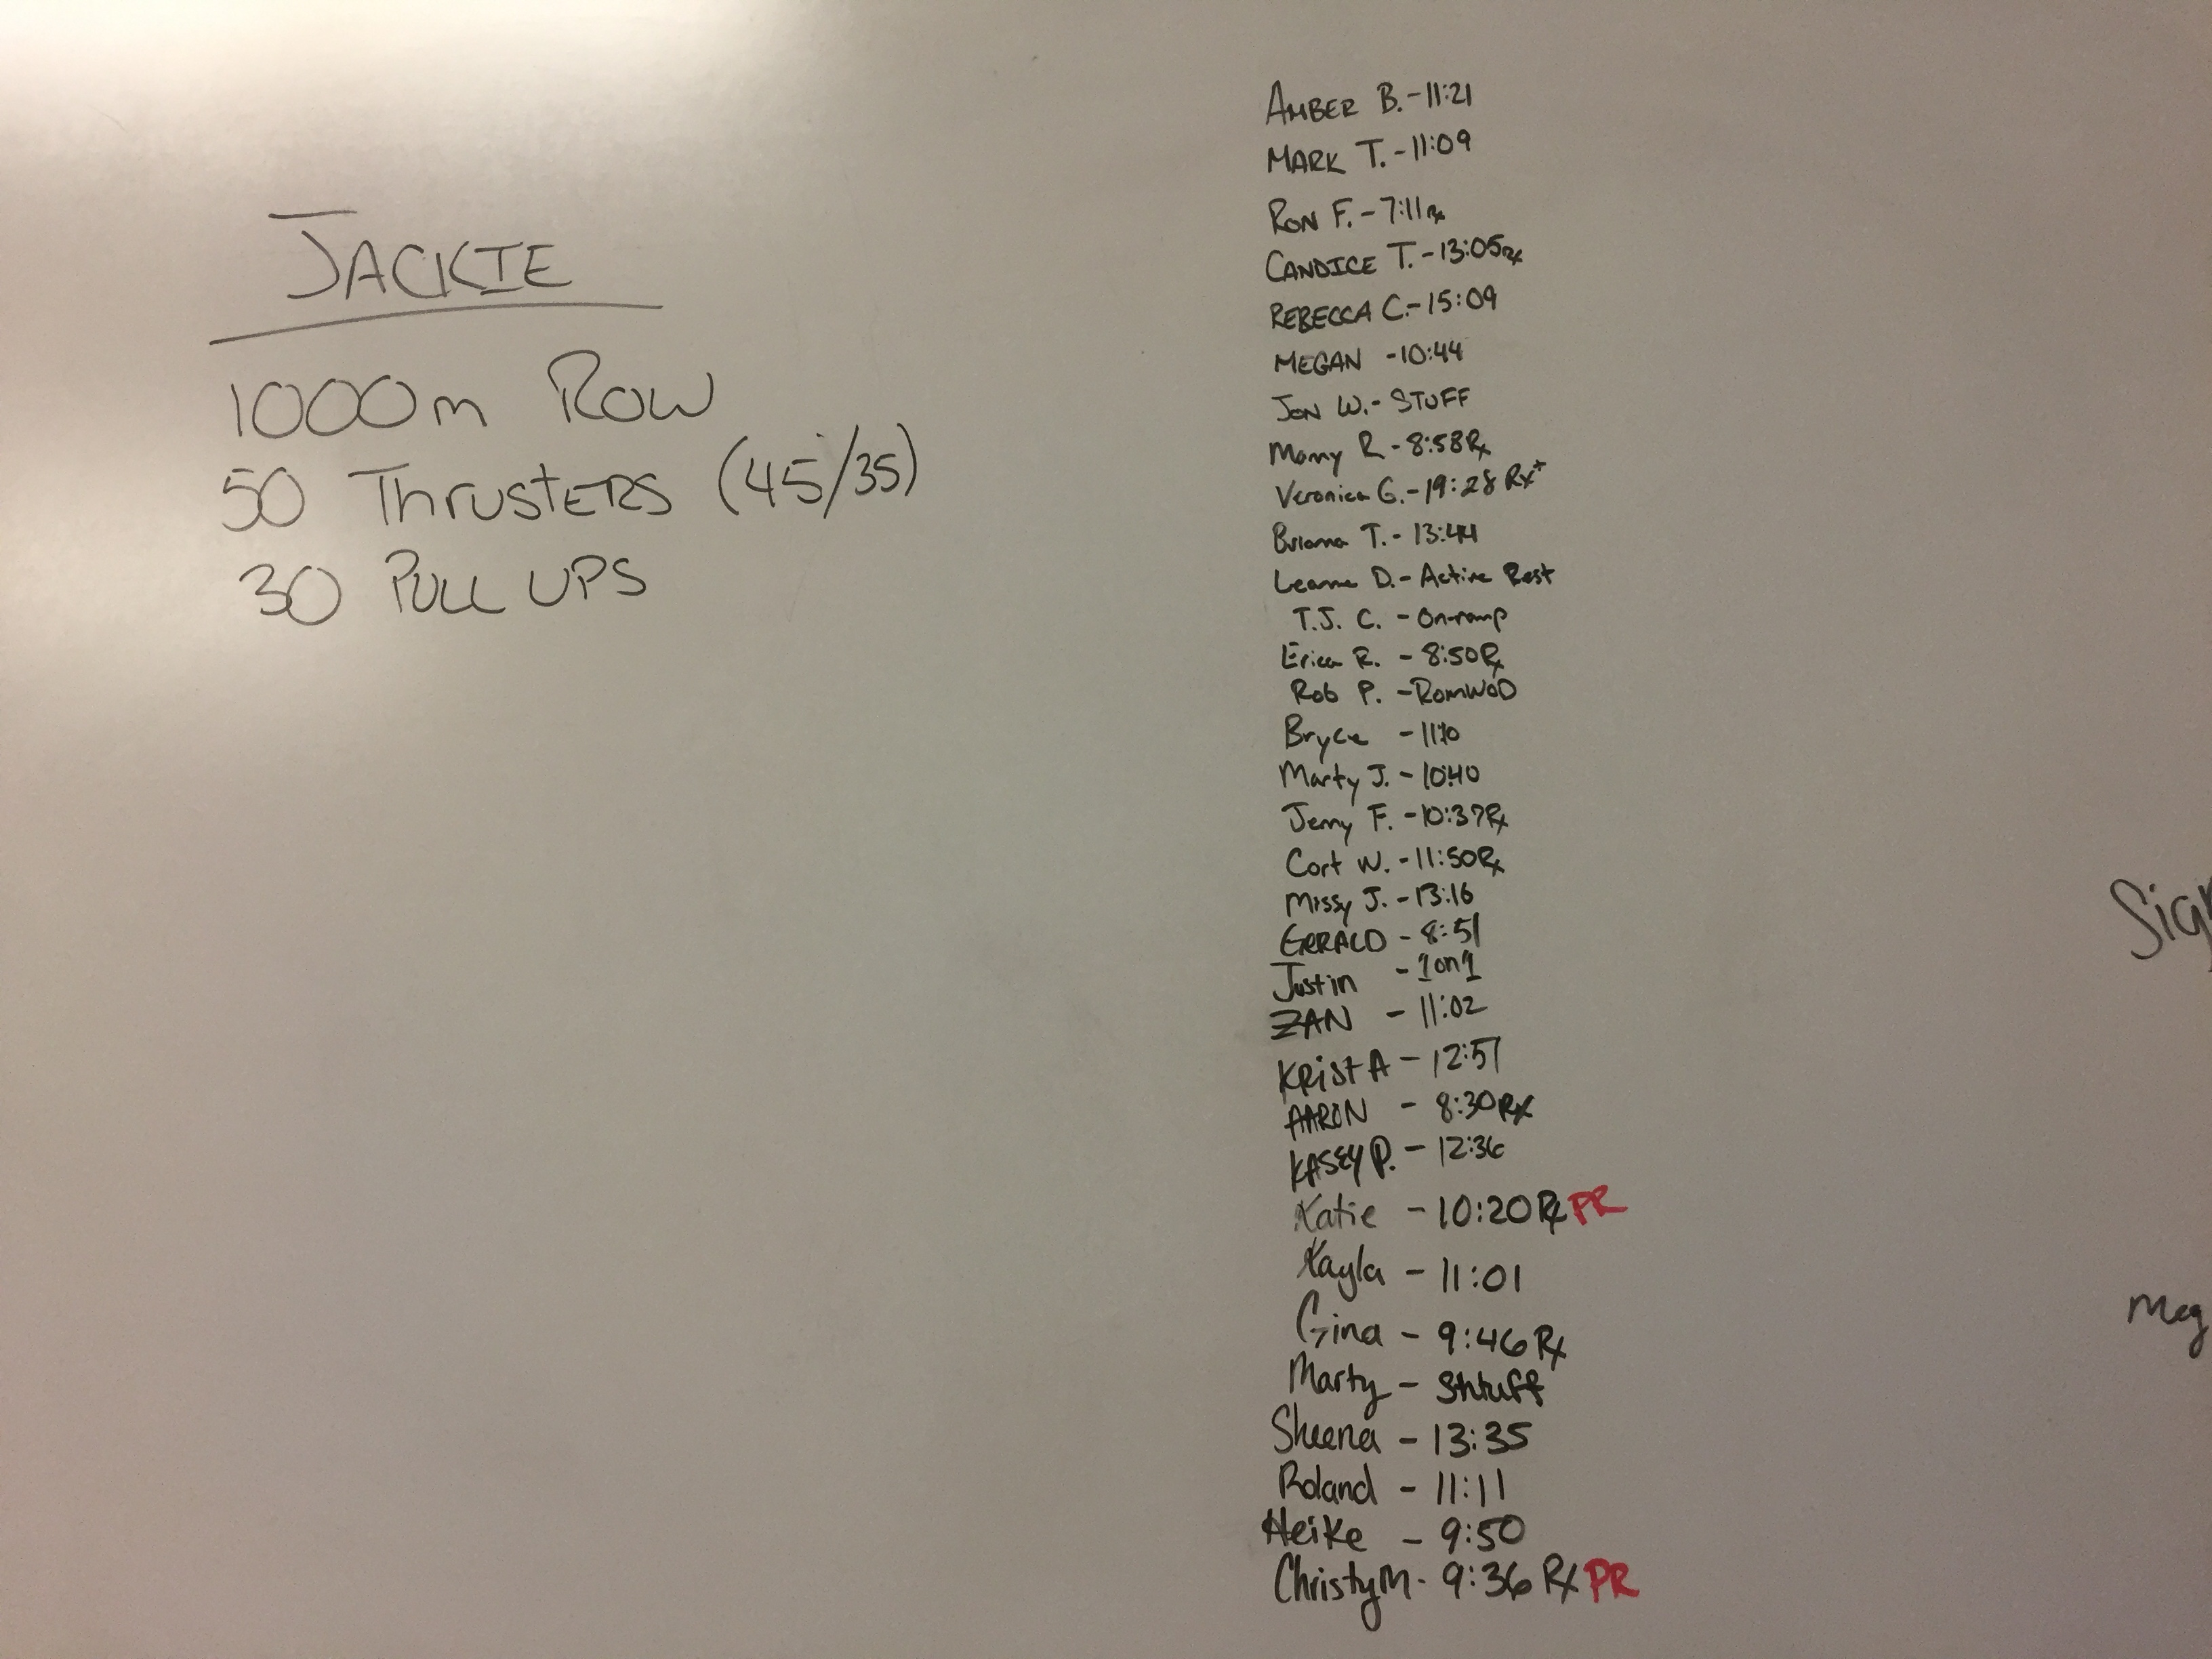 JACKIE
1000m ROW
50 THRUSTERS (45/35)
30 PULL UPS
AMBER B. - 11:21
MARK T. - 11:09
RON F. - 7:11 Rx
CANDICE T. - 13:05 Rx
REBECCA C. - 15:09
MEGAN - 10:44
JON W. - STUFF
Manny R - 8:58 Rx
Veronica G. - 19:28 Rx+
Briana T. - 13:44
Leanne D. - Active Rest
T.J. C. - On-ramp
Erica R. - 8:50 Rx
Rob P. - ROMWOD
Bryce -
Marty J. - 10:40
Jerry F. - 10:37 Rx
Cort W. - 11:50 Rx
Missy J. - 13:16
GERALD - 8:51
Justin - 1 on 1
ZAN - 11:02
KRISTA - 12:57
AARON - 8:30 Rx
KASEY P. - 12:36
Katie - 10:20 Rx PR
Kayla - 11:01
Gina - 9:46 Rx
Marty - Shtuff
Sheena - 13:35
Roland - 11:11
Heike - 9:50
Christy M. - 9:36 Rx PR
Sign
Meg